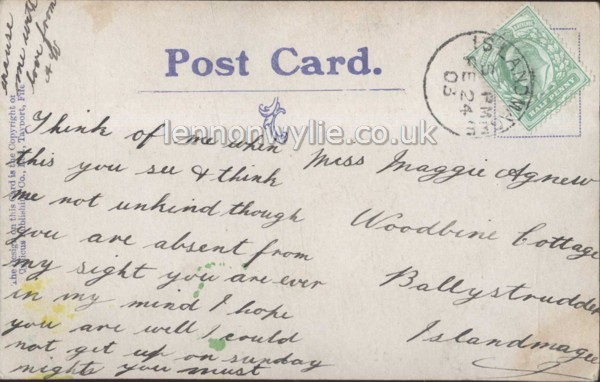 Post Card.
lennonwylie.co.uk
HALF PENNY
Think of me when
this you see & think
me not unkind though
you are absent from
my sight you are ever
in my mind I hope
you are well I could
not get up on sunday
night you must
excuse
me with
love from
Miss Maggie Agnew
Woodbine Cottage
Ballystrudder
Islandmagee
The Design on this Card is the Copyright of
Publishing Co., Tayport, Fife